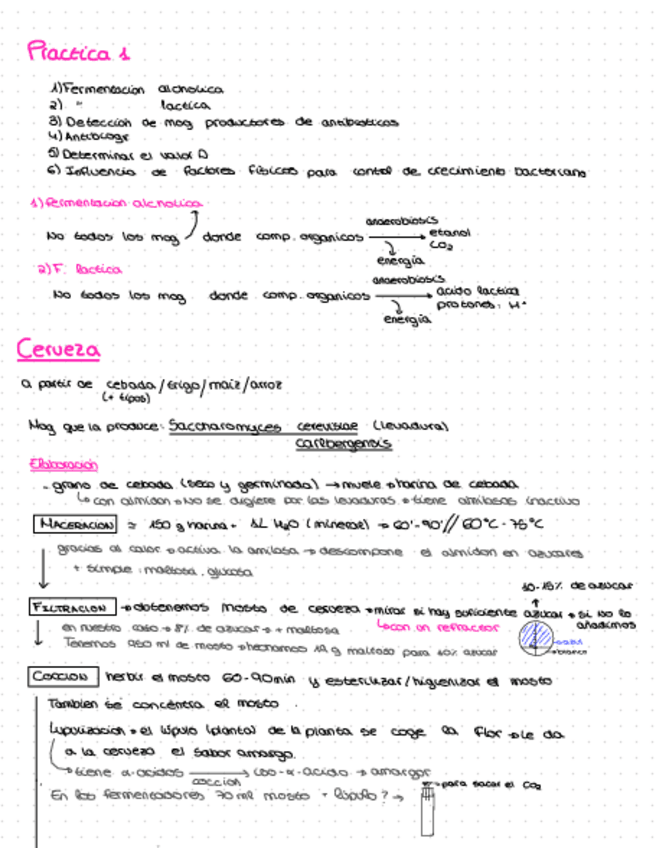 Practica 1
1) Fermentación alcholica
2) " lactica
3) Detección de mog productores de antibioticos
4) Antibiogr
5) Determinar el valor D
6) Influencia de factores físicos para control de crecimiento bacteriano
1) Fermentacion alcholica
anaerobiosis
No todos los mog donde comp. organicos → etanol
CO2
energía
2) F. lactica
anaerobiosis
No todos los mog donde comp. organicos → acido lactico
protones, H+
energía
Cerveza
a partir de cebada/trigo/maiz/arroz
(+ tipos)
Mog que la produce: Saccharomyces cerevisiae (levadura)
carlbergensis
Elaboración
- grano de cebada (seco y germinado) → muele → harina de cebada
↳ con almidon → No se digiere por las levaduras → tiene amilasas inactivo
MACERACION = 150 g harina + 1L H2O (mineral) → 60'-90' // 60°C - 75°C
gracias al calor → activa la amilasa → descompone el almidon en azucares
+ simple: maltosa, glucosa
10-15% de azucar
FILTRACION → obtenemos mosto de cerveza → mirar si hay suficiente azucar → si no lo añadimos
en nuestro caso → 8% de azucar → + maltosa ↳ con un refractor
azul
blanco
Tenemos 950 ml de mosto → hechamos 19 g maltosa para 10% azucar
COCCION hervir el mosto 60-90min y esterilizar/higienizar el mosto
Tambien se concentra el mosto.
Lupulizacion → el lúpulo (planta) de la planta se coge la flor → le da
a la cerveza el sabor amargo.
↳ tiene α-acidos → iso-α-acido → amargor
coccion
para sacar el CO2
En los fermentadores 70 ml mosto + lúpulo? →